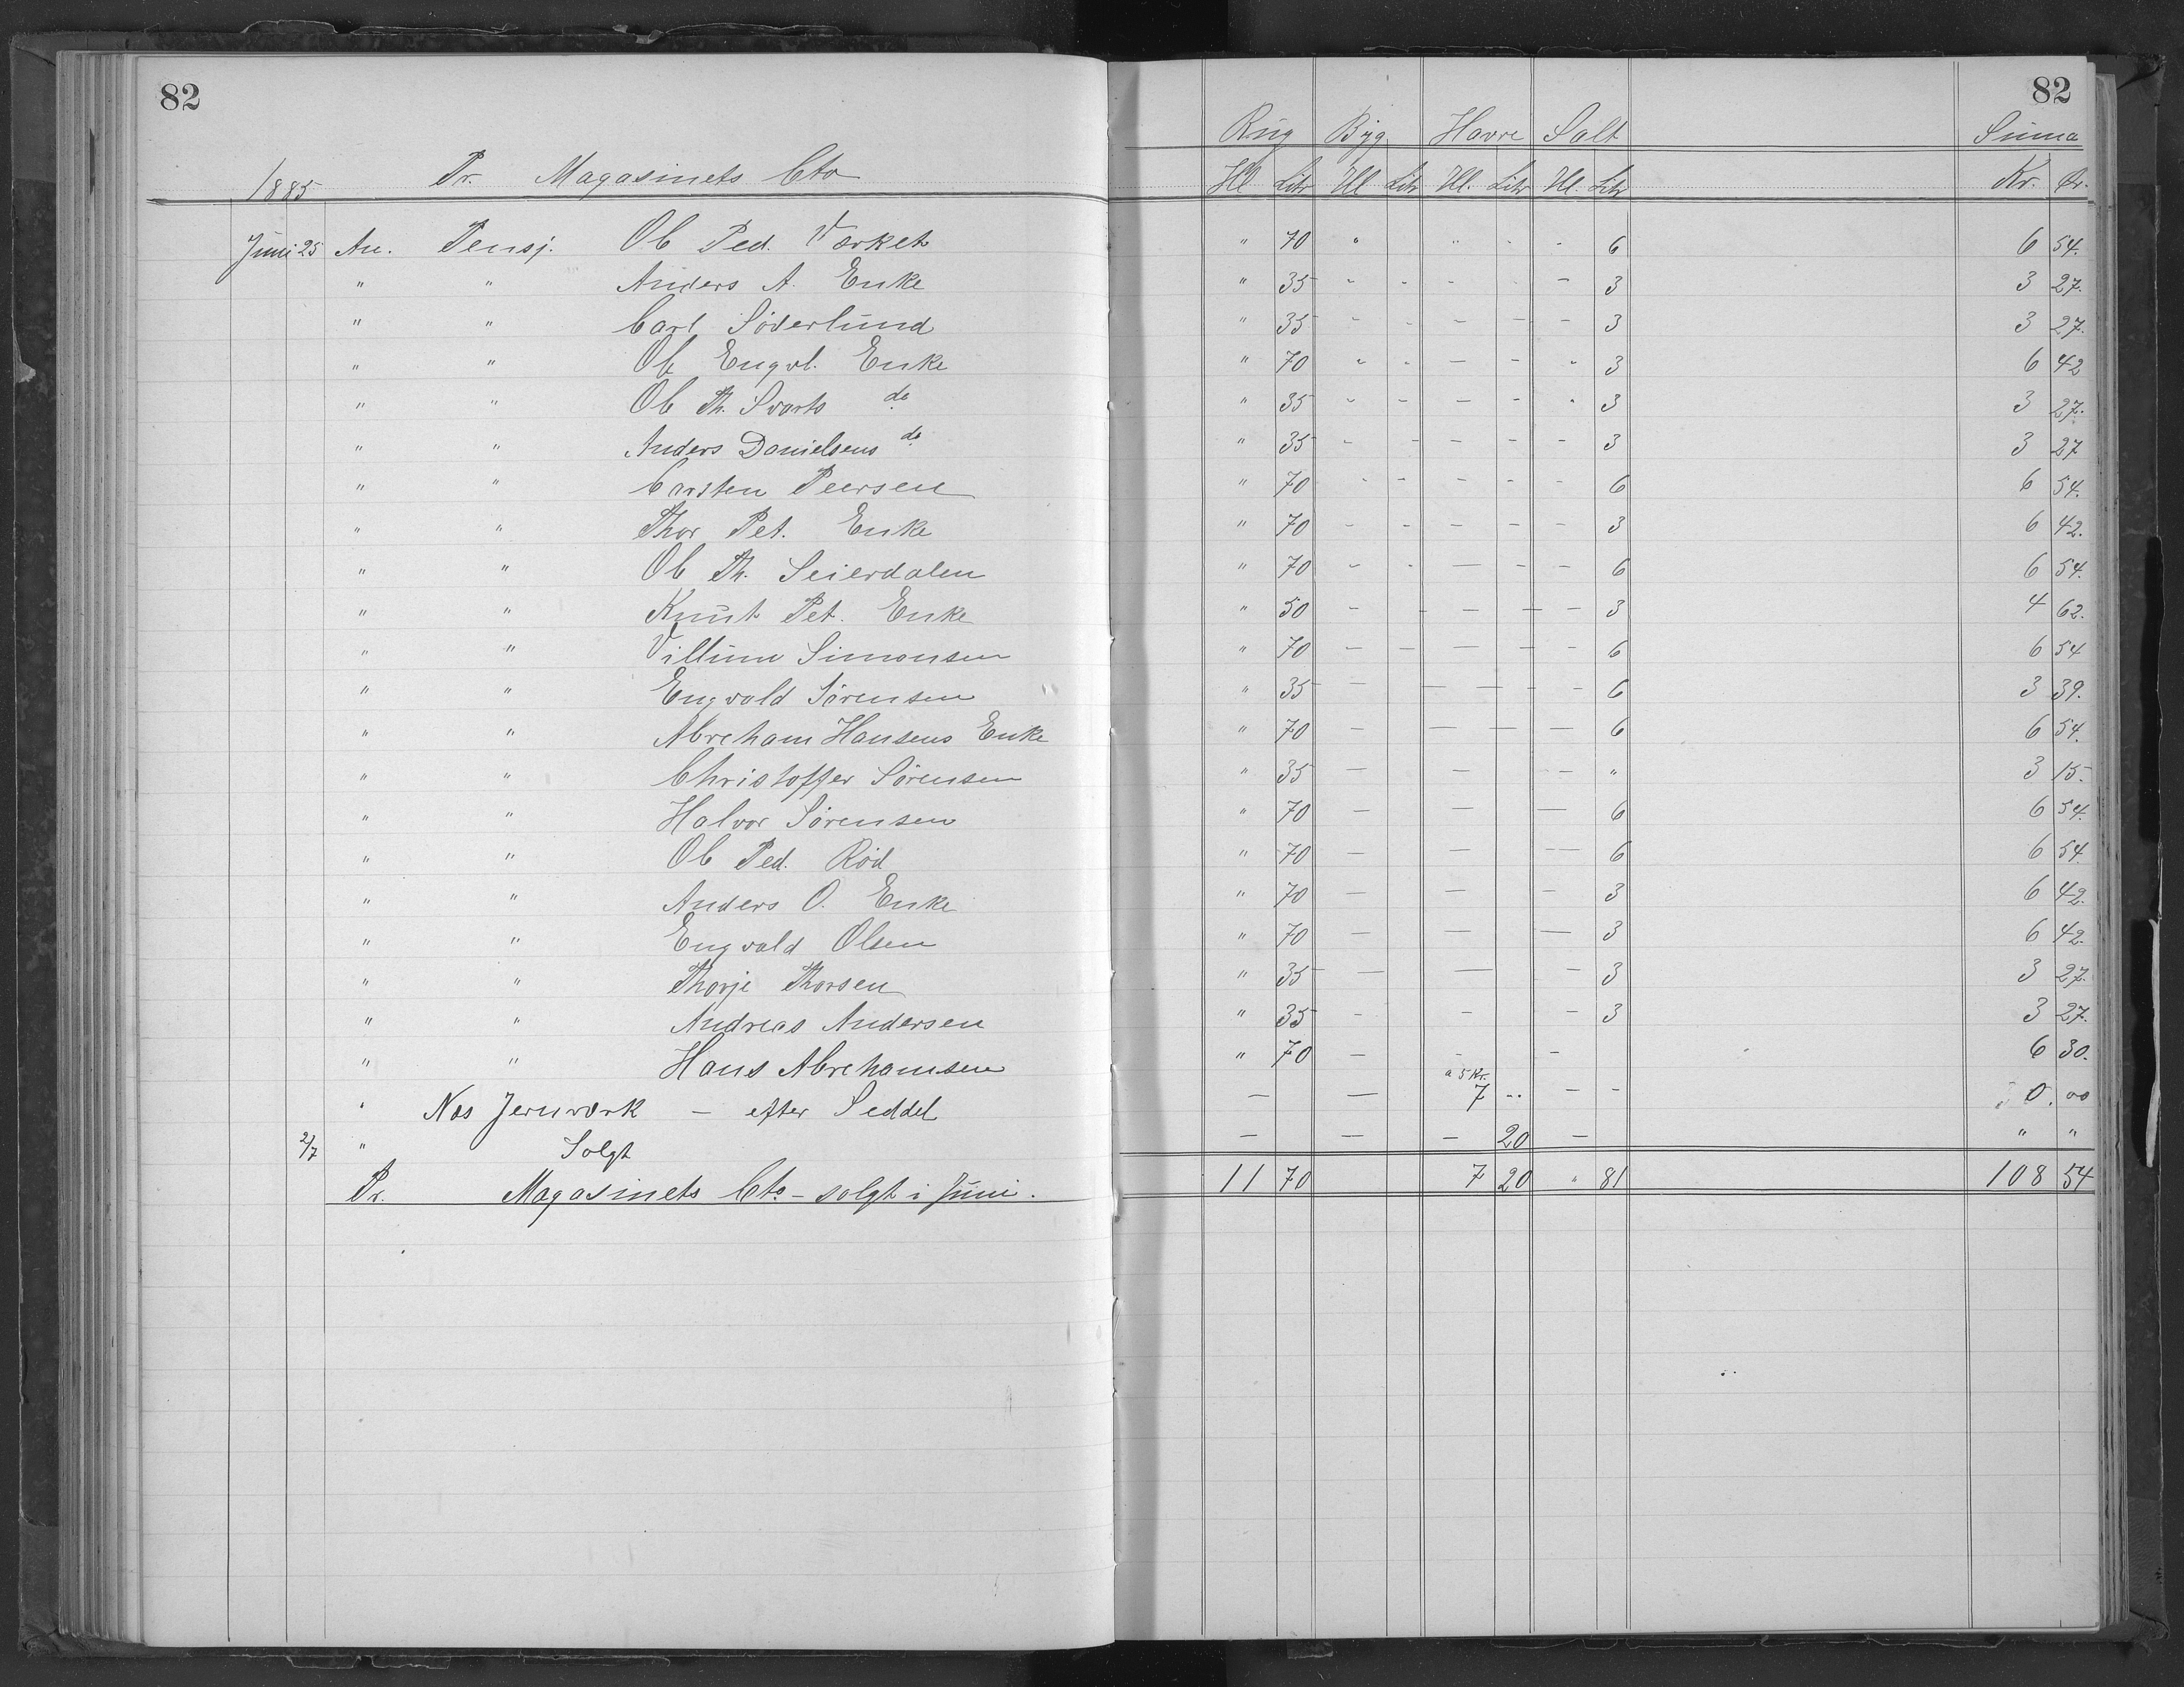 82 82
Rug Byg Havre Salt Suma
1885 Pr. Magasinets Cto Hl Litr Hl Litr Hl. Litr Hl. Litr Kr. Ør.
Juni 25 An. Pensj. Ole Ped. Værket " 70 " " - - 6 6 54.
" " Anders A. Enke " 35 - - - - - 3 3 27.
" " Carl Söderlund " 35 - - - - - 3 3 27.
" " Ole Engvl. Enke " 70 " - - - - 3 6 42
" " Ole Th. Svarts do " 35 - - - - " 3 3 27.
" " Anders Danielsens do " 35 - - - - - 3 3 27
" " Carsten Peersen " 70 - - - - - 6 6 54.
" " Thor Pet. Enke " 70 - - - - - 3 6 42.
" " Ole Th. Seierdalen " 70 - - - - - 6 6 54.
" " Knut Pet. Enke " 50 - - - - - 3 4 62.
" " Villum Simonsen " 70 - - - - - 6 6 54
" " Engvald Sörensen " 35 - - - - - 6 3 39.
" " Abreham Hansens Enke " 70 - - - - 6 6 54.
" " Christoffer Sörensen " 35 - - - " 3 15.
" " Halvor Sörensen " 70 - - - 6 6 54.
" " Ole Ped. Röd " 70 - - - 6 6 54.
" " Anders O. Enke " 70 - - - 3 6 42.
" " Engvald Olsen " 70 - - - 3 6 42.
" " Thorje Thorsen " 35 - - - 3 3 27.
" " Andreas Andersen " 35 - - - 3 3 27.
" " Hans Abrehamsen " 70 - - - 6 30.
a 5 Kr.
" Næs Jernværk - efter Seddel - - 7 " - - 0.00
2/7 " Solgt - - - 20 - " "
Pr. Magasinets Cto - solgt i Juni. 11 70 7 20 " 81 108 54